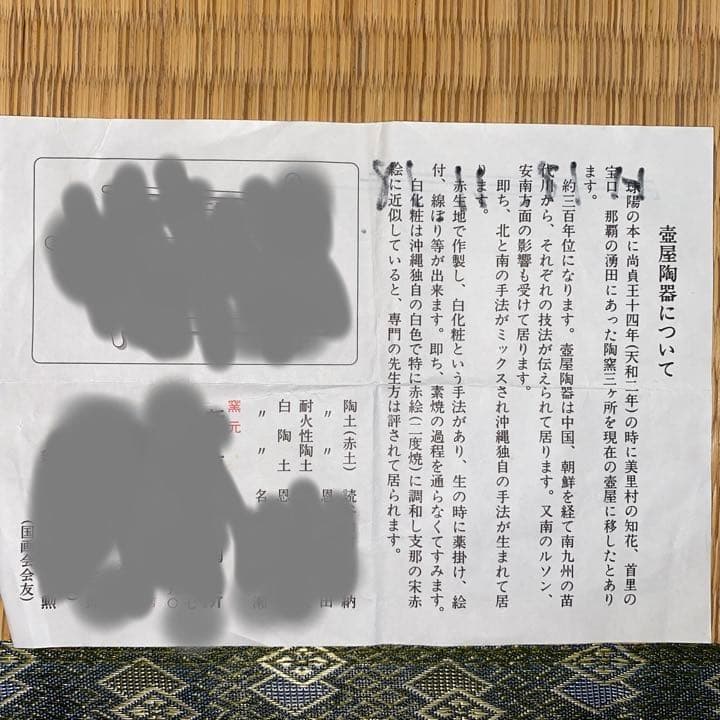 壺屋陶器について
球陽の本に尚貞王十四年(天和二年)の時に美里村の知花、首里の
宝口、那覇の湧田にあった陶窯三ヶ所を現在の壺屋に移したとあり
ます。
約三百年位になります。壺屋陶器は中国、朝鮮を経て南九州の苗
代川から、それぞれの技法が伝えられて居ります。又南のルソン、
安南方面の影響も受けて居ります。
即ち、北と南の手法がミックスされ沖縄独自の手法が生まれて居
ります。
赤生地で作製し、白化粧という手法があり、生の時に薬掛け、絵
付、線ぼり等が出来ます。即ち、素焼の過程を通らなくてすみます。
白化粧は沖縄独自の白色で特に赤絵(二度焼)に調和し支那の宋赤
絵に近似していると、専門の先生方は評されて居られます。
陶土(赤土) 読 納
〃 〃 恩 田
耐火性陶土 恩
白陶土 恩
〃 〃 名
窯元
(国画会会友) 勲